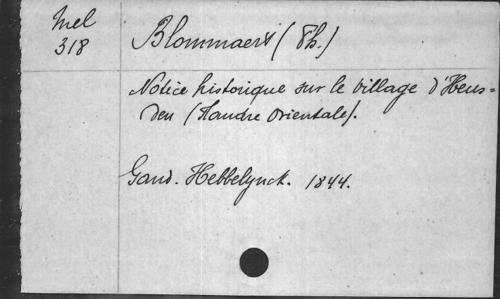 Mel
318
Blommaert (Ph.)
Notice historique sur le village d'Heus=
den (Flandre Orientale).
Gand. Hebbelynck. 1844.